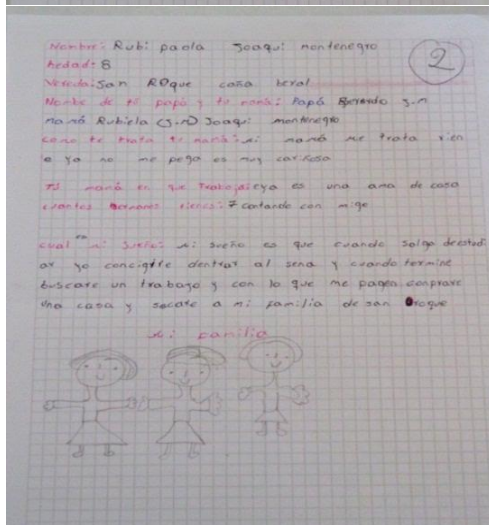 Nombre: Rubi paola Joaqui montenegro
2
hedad: 8
Vereda: San ROque casa beral
Nombe de tú papá y tu mamá: Papá Bernardo J.m
mamá Rubiela (J.m) Joaqui montenegro
como te trata tu mamá: mi mamá me trata vien
a ya no me pega es muy cariñosa
TU mamá en que trabaja: eya es una ama de casa
cuantos hermanos tienes: 7 contando con migo
cual es mi Sueño: mi sueño es que cuando salga de estudi
ar yo concigíte dentrar al sena y cuando termine
buscare un trabago y con lo que me pagen conprare
una casa y sacare a mi familia de san roque
mi familia